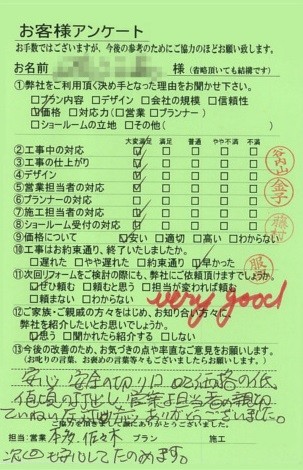 お客様アンケート
お手数ではございますが、今後の参考のためにご協力のほどお願い致します。
お名前 様 (省略頂いても結構です)
①弊社をご利用頂く決め手となった理由をお聞かせ下さい。
□プラン内容 □デザイン □会社の規模 □信頼性
☑価格 □対応力(□営業 □プランナー)
□ショールームの立地 □その他( )
大変満足 満足 普通 やや不満 不満
②工事中の対応 ☑ □ □ □ □
③工事の仕上がり ☑ □ □ □ □
④デザイン ☑ □ □ □ □
⑤営業担当者の対応 ☑ □ □ □ □
⑥プランナーの対応 □ □ □ □ □
⑦施工担当者の対応 ☑ □ □ □ □
⑧ショールーム受付の対応 ☑ □ □ □ □
⑨価格について ☑安い □適切 □高い □わからない
⑩工事はお約束通り、終了いたしましたか。
□遅れた □やや遅れた □約束通り □早かった
⑪次回リフォームをご検討の際にも、弊社にご依頼頂けますでしょうか。
☑ぜひ頼む □頼むと思う □担当が変われば頼む
□頼まない □わからない
very good
⑫ご家族・ご親戚の方々をはじめ、お知り合い方々に、
弊社を紹介したいとお思いでしょうか。
☑思う □聞かれたら紹介する □しない
⑬今後の改善のため、お気づきの点や率直なご意見をお願いします。
(お叱りの言葉、お褒めの言葉等々何でもございましたらお願いします)
安い 安全
営業担当者の親切
ありがとうございました。
ご協力を頂きまして誠にありがとうございました。
担当:営業 本多 佐々木 プラン 施工
次回もたのみます。
宮内山
金子
服